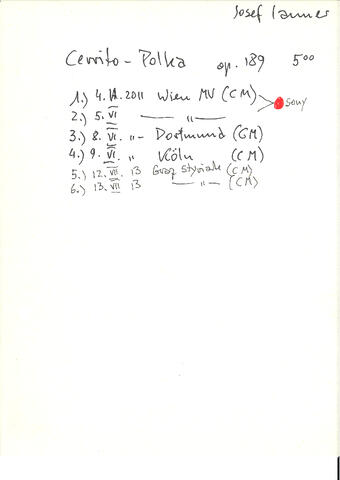 Josef Lanner
Cerrito - Polka op. 189 5⁰⁰
1.) 4. VI. 2011 Wien MV (CM)
sony
2.) 5. VI —— " ——
3.) 8. VI. "- Dortmund (CM)
4.) 9. VI. " Köln (CM)
5.) 12. VII. 13 Graz Styriarte (CM)
6.) 13. VII 13 —— " — (CM)